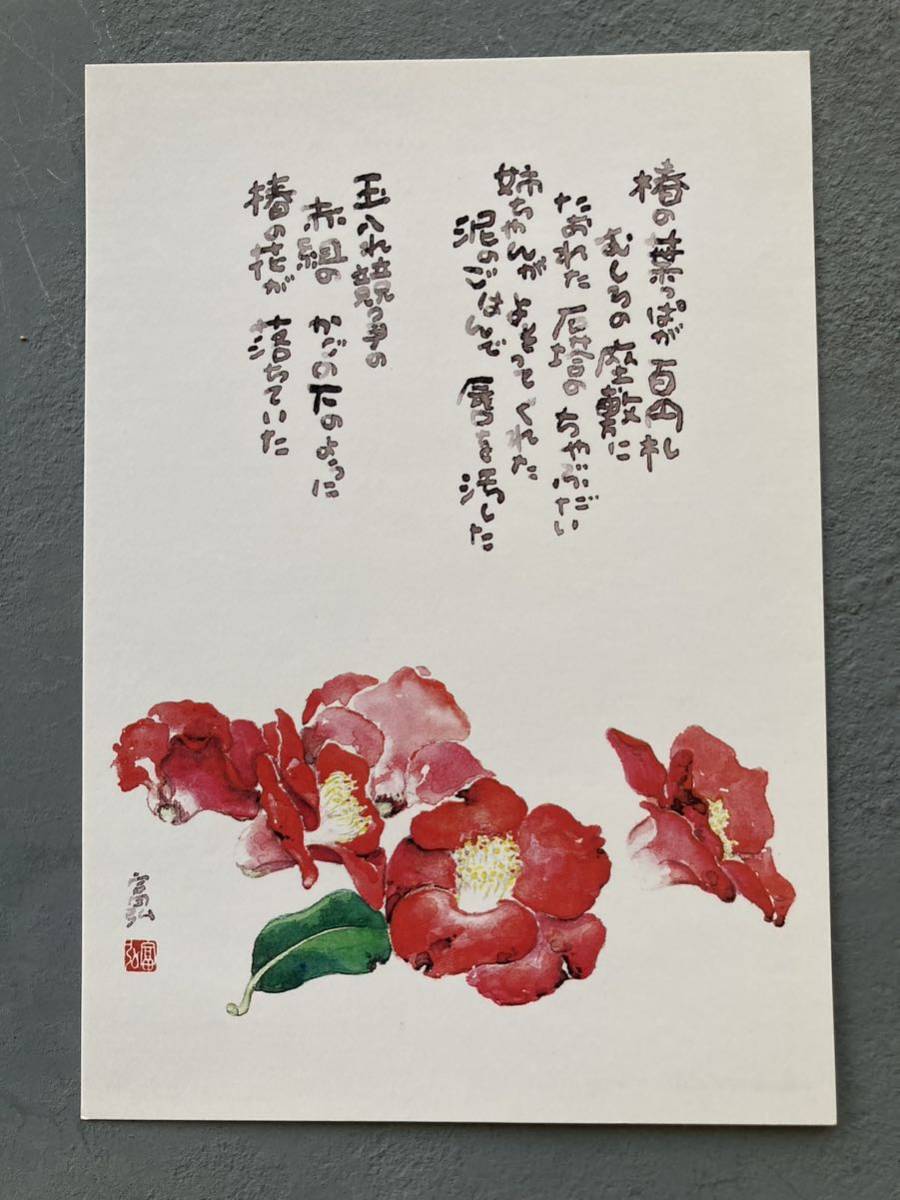 椿の葉っぱが 百円札
むしろの座敷に
たおれた 石塔の ちゃぶだい
姉ちゃんが よそってくれた
泥のごはんで 唇を 汚した
玉入れ競争の
赤組の かごの下のように
椿の花が 落ちていた
富弘
富弘